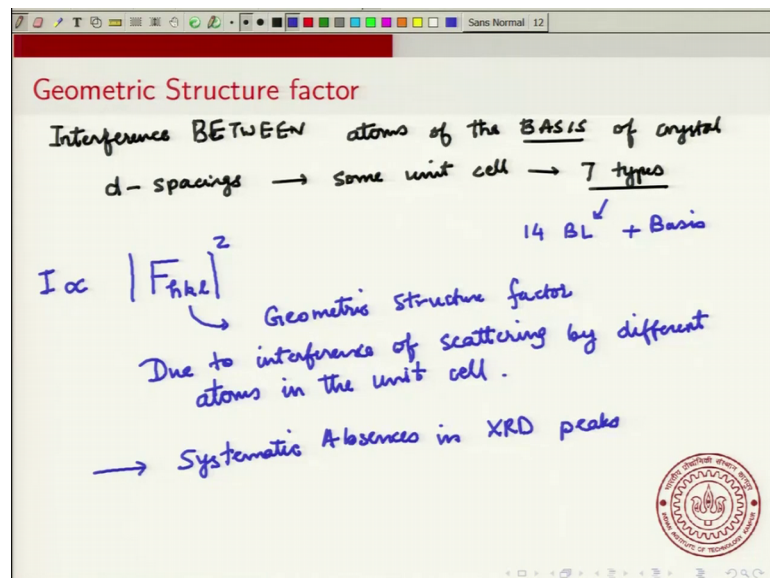 Sans Normal 12
Geometric Structure factor
Interference BETWEEN atoms of the BASIS of crystal
d-spacings → some unit cell → 7 types
14 BL + Basis
I ∝ |F_hkl|²
Geometric structure factor
Due to interference of scattering by different
atoms in the unit cell.
→ Systematic Absences in XRD peaks
INDIAN INSTITUTE OF TECHNOLOGY KANPUR